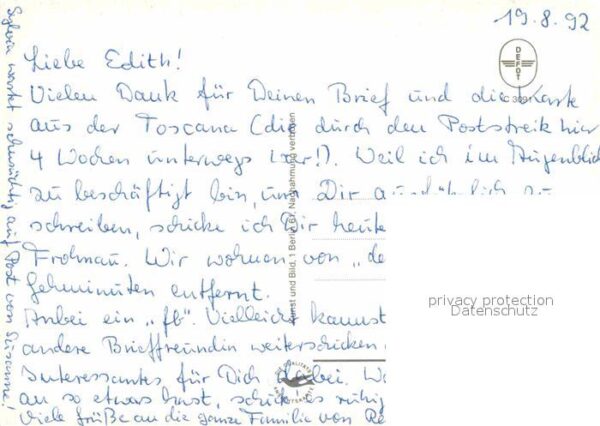 19.8.92
Liebe Edith!
Vielen Dank für Deinen Brief und die Karte
aus der Toscana (die durch den Poststreik hier
4 Wochen unterwegs war!). Weil ich im Augenblick
zu beschäftigt bin, um Dir ausführlich zu
schreiben, schicke ich Dir heute
Frohnau. Wir wohnen von „de
Gehminuten entfernt.
Anbei ein „fb". Vielleicht kannst
andere Brieffreundin weiterschicken
Interessantes für Dich dabei. Wa
an so etwas hast, schick es ruhig
Viele Grüße an die ganze Familie von Re
Sylvia wartet sehnsüchtig auf Post von Susanne!
DEPOT
Kunst und Bild, 1 Berlin 61, Nachahmung verboten
privacy protection
Datenschutz